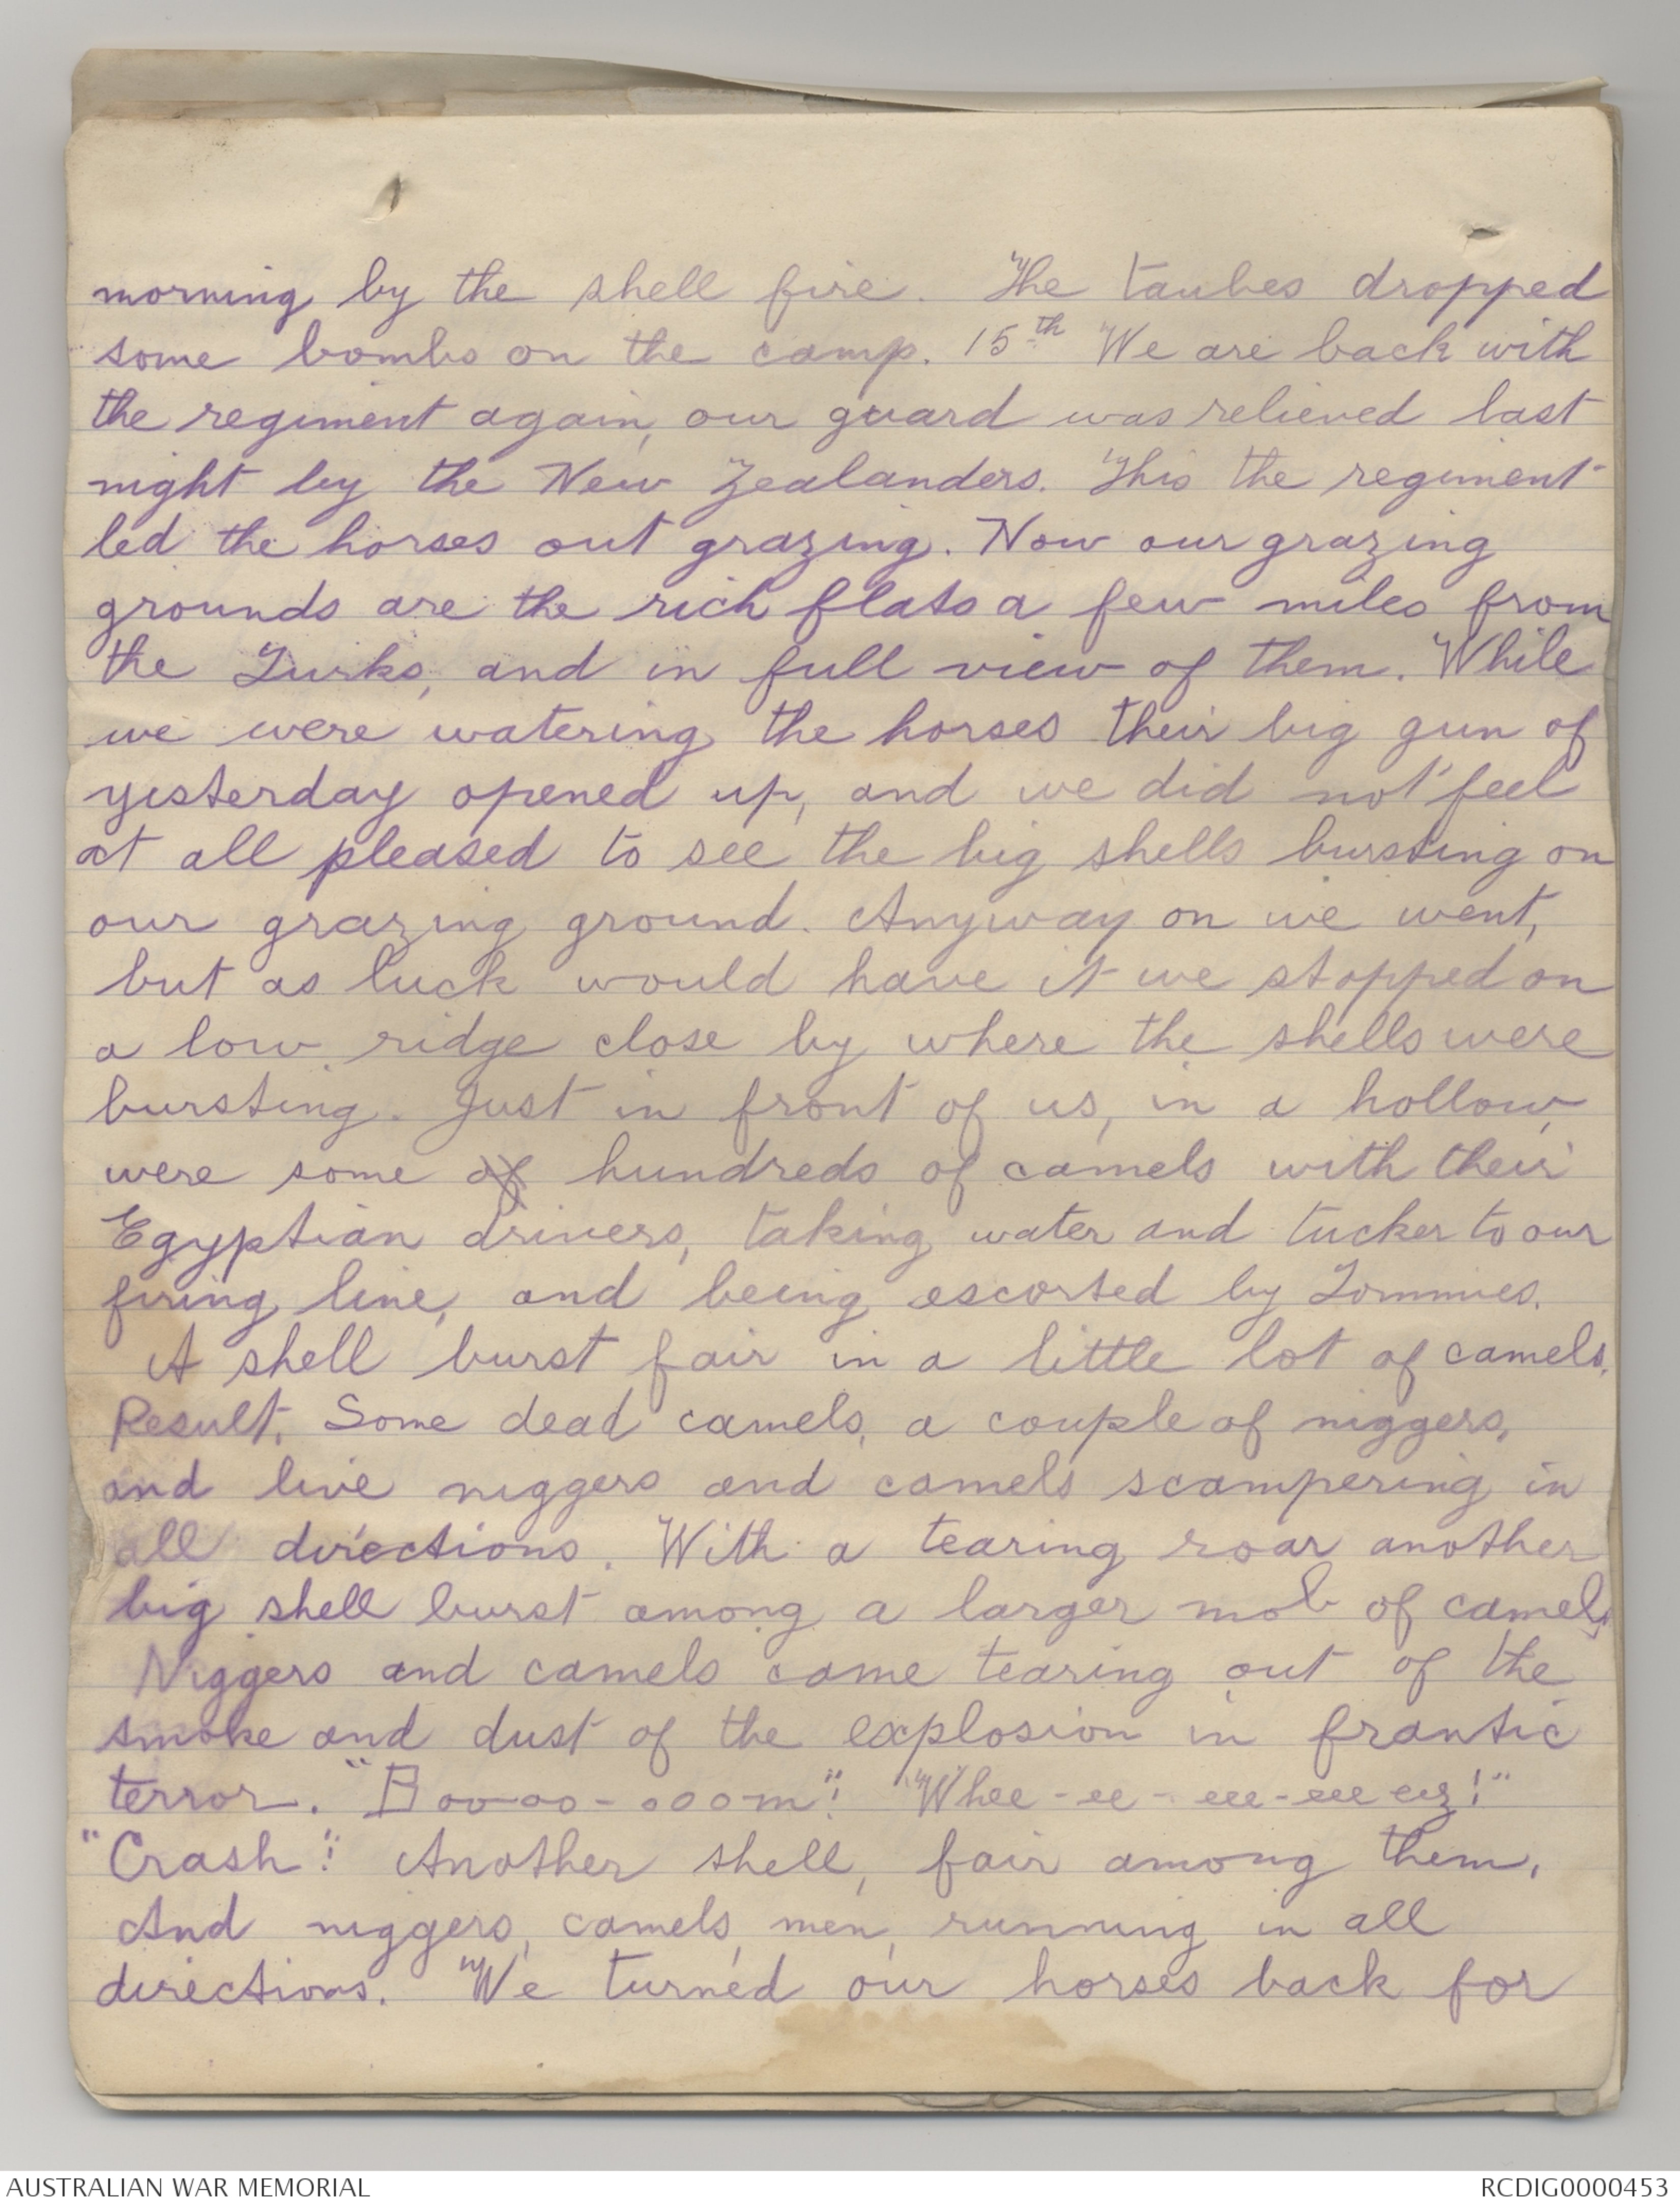 morning by the shell fire. The taubes dropped
some bombs on the camp. 15th We are back with
the regiment again, our guard was relieved last
night by the New Zealanders. This the regiment
led the horses out grazing. Now our grazing
grounds are the rich flats a few miles from
the Turks, and in full view of them. While
we were watering the horses their big gun of
yesterday opened up, and we did not feel
at all pleased to see the big shells bursting on
our grazing ground. Anyway on we went,
but as luck would have it we stopped on
a low ridge close by where the shells were
bursting. Just in front of us, in a hollow,
were some of hundreds of camels with their
Egyptian drivers, taking water and tucker to our
firing line, and being escorted by Tommies.
A shell burst fair in a little lot of camels.
Result. Some dead camels, a couple of niggers,
and live niggers and camels scampering in
all directions. With a tearing roar another
big shell burst among a larger mob of camels.
Niggers and camels came tearing out of the
smoke and dust of the explosion in frantic
terror. "Boooo-ooom"! "Whee-ee-eee-eee eez!"
"Crash"! Another shell, fair among them.
And niggers, camels, men, running in all
directions. We turned our horses back for
AUSTRALIAN WAR MEMORIAL
RCDIG0000453